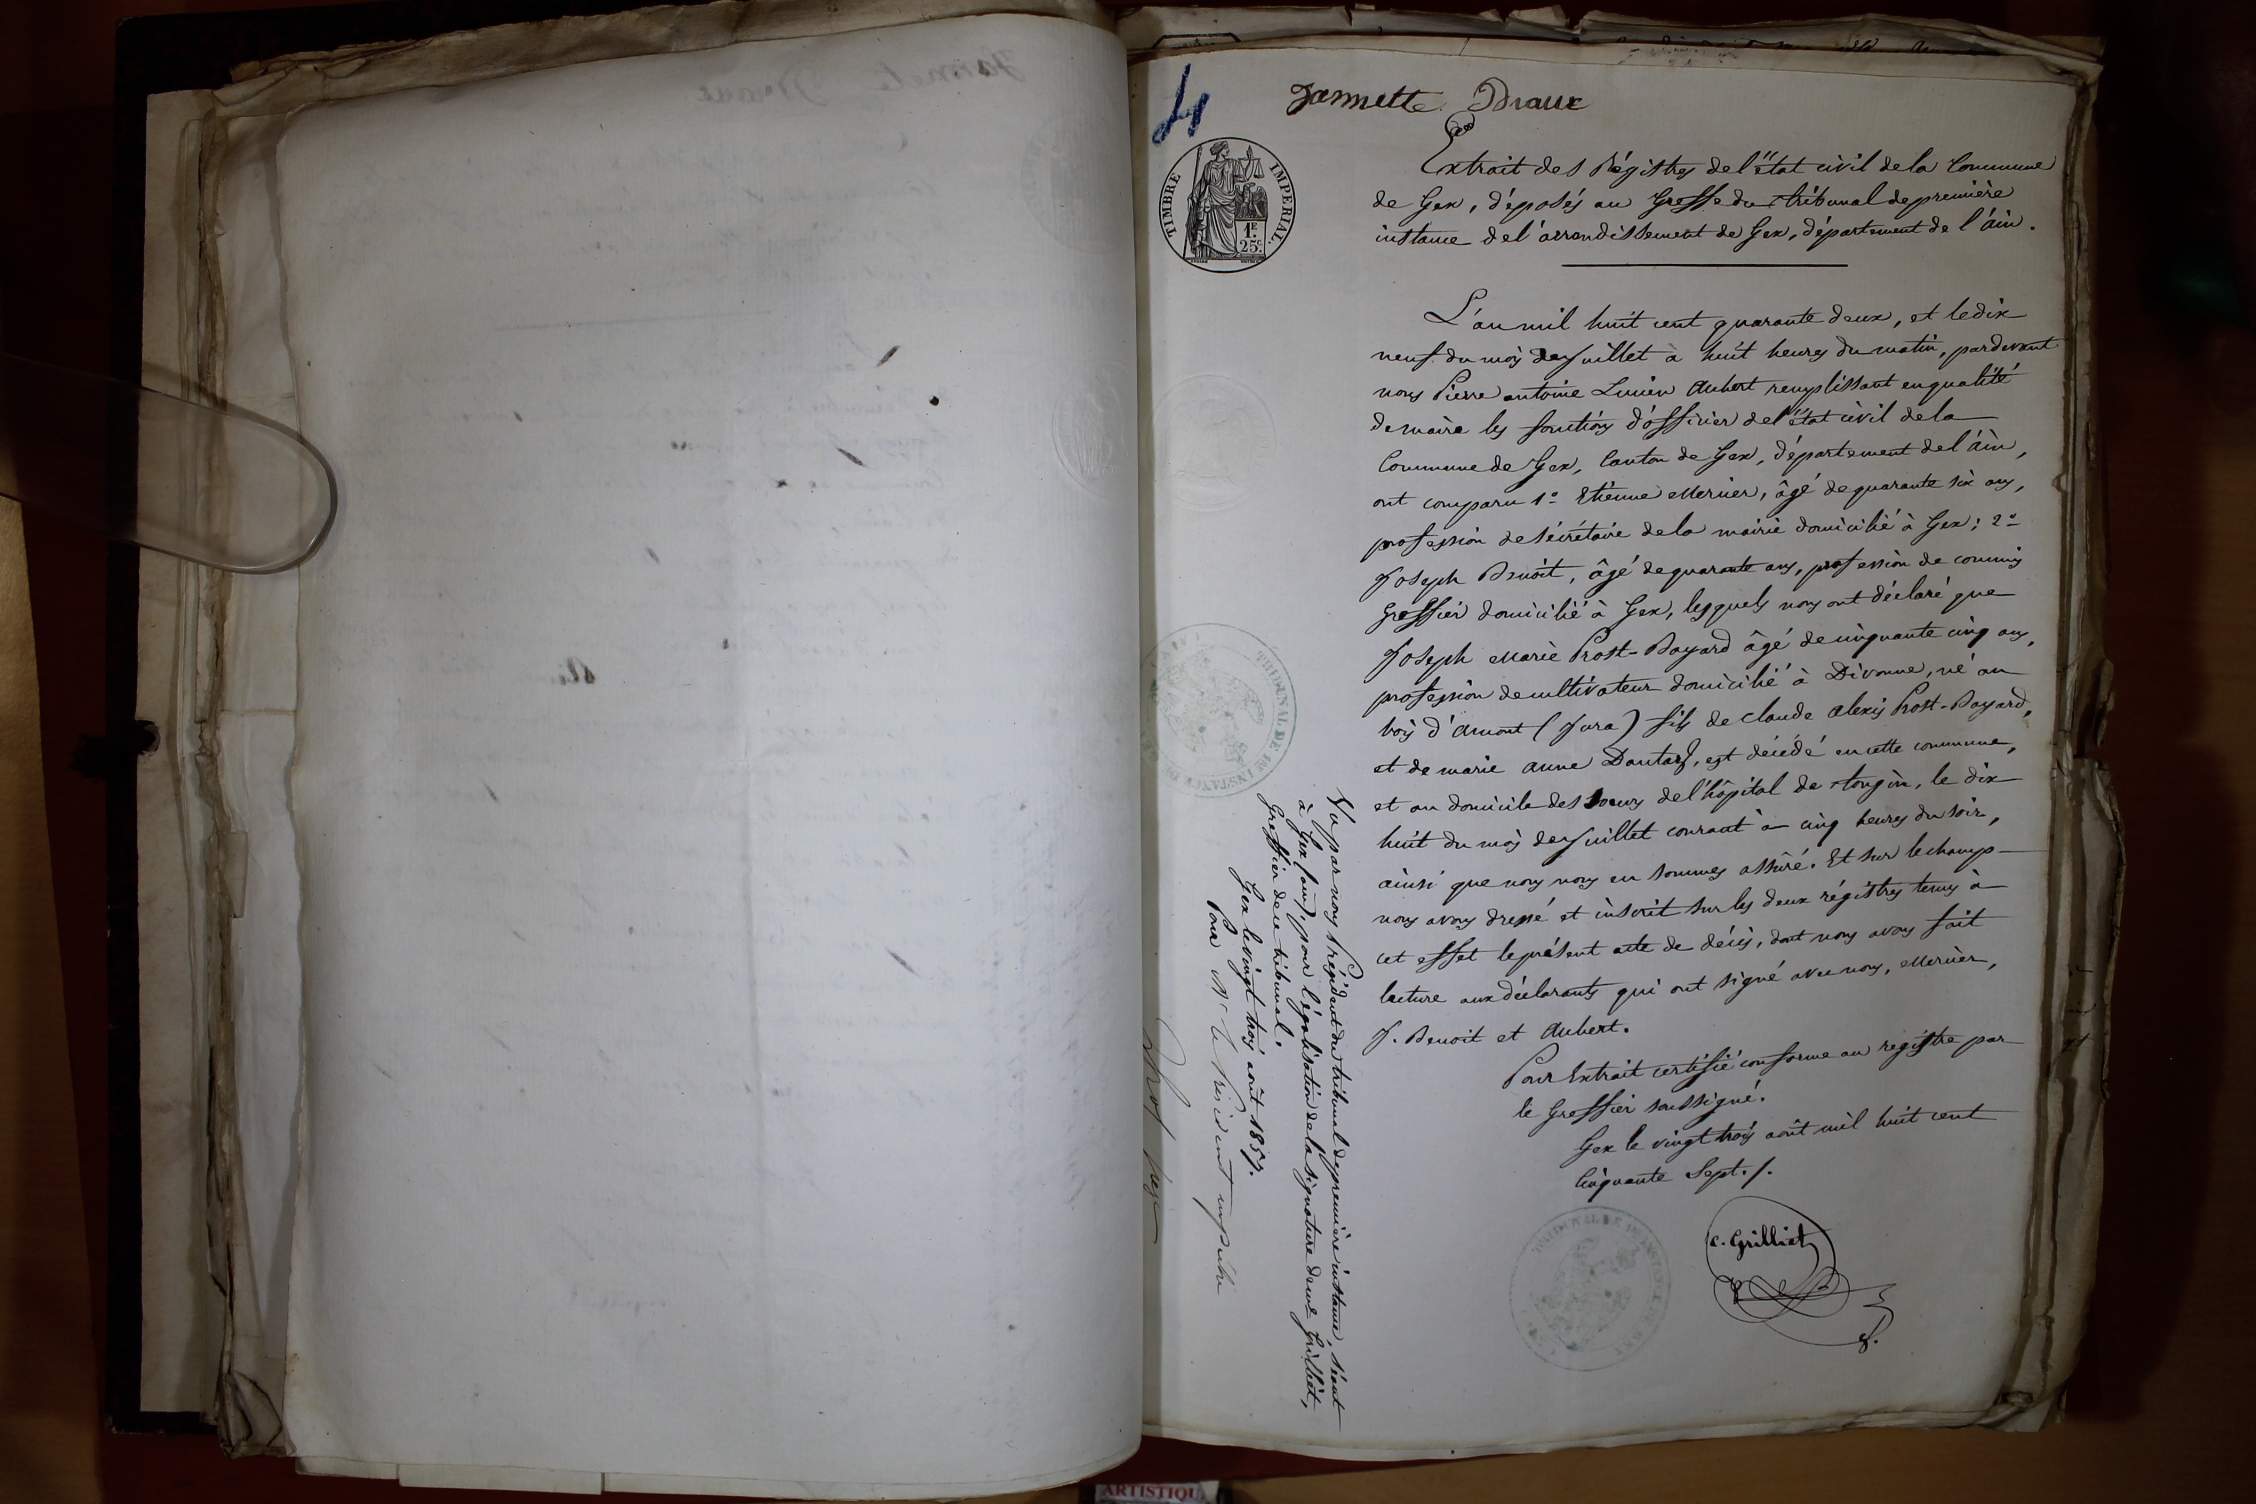 Jannette Draux
Extrait des Régistres de l'état civil de la Commune
de Gex, déposés au Greffe du tribunal de première
instance de l'arrondissement de Gex, département de l'ain.
TIMBRE IMPERIAL.
1F.
25c.
L'an mil huit cent quarante deux, et le dix
neuf du mois de Juillet à huit heures du matin, pardevant
nous Pierre antoine Lucien Aubert remplissant en qualité
de maire les fonctions d'officier de l'état civil de la
Commune de Gex, Canton de Gex, département de l'ain,
ont comparu 1° Etienne Mercier, âgé de quarante six ans,
profession de sécrétaire de la mairie domicilié à Gex; 2°
Joseph Benoit, âgé de quarante ans, profession de commis
Greffier domicilié à Gex, lesquels nous ont déclaré que
Joseph Marie Prost-Bayard âgé de cinquante cinq ans,
profession de cultivateur domicilié à Divonne, né au
bois d'amont (Jura) fils de Claude Alexis Prost-Bayard,
et de marie anne Dantas, est décédé en cette commune,
et au domicile des soeurs de l'hôpital de tougin, le dix
huit du mois de Juillet courant à cinq heures du soir,
ainsi que nous nous en sommes assuré. Et sur le champ
nous avons dressé et inscrit sur les deux régistres tenus à
cet effet le présent acte de décès, dont nous avons fait
lecture aux déclarants qui ont signé avec nous, Mercier,
J. Benoit et Aubert.
Pour Extrait certifié conforme au registre par
le Greffier soussigné.
Gex le vingt trois août mil huit cent
Cinquante Sept./.
C. Grilliet
Vu par nous Président du tribunal de première instance, séant
à Gex (ain), pour légalisation de la signature de Me Grilliet,
Greffier de ce tribunal.
Gex le vingt trois août 1857.
Pour Mr le Président empêché
TRIBUNAL DE 1RE INSTANCE
ARTISTIQU